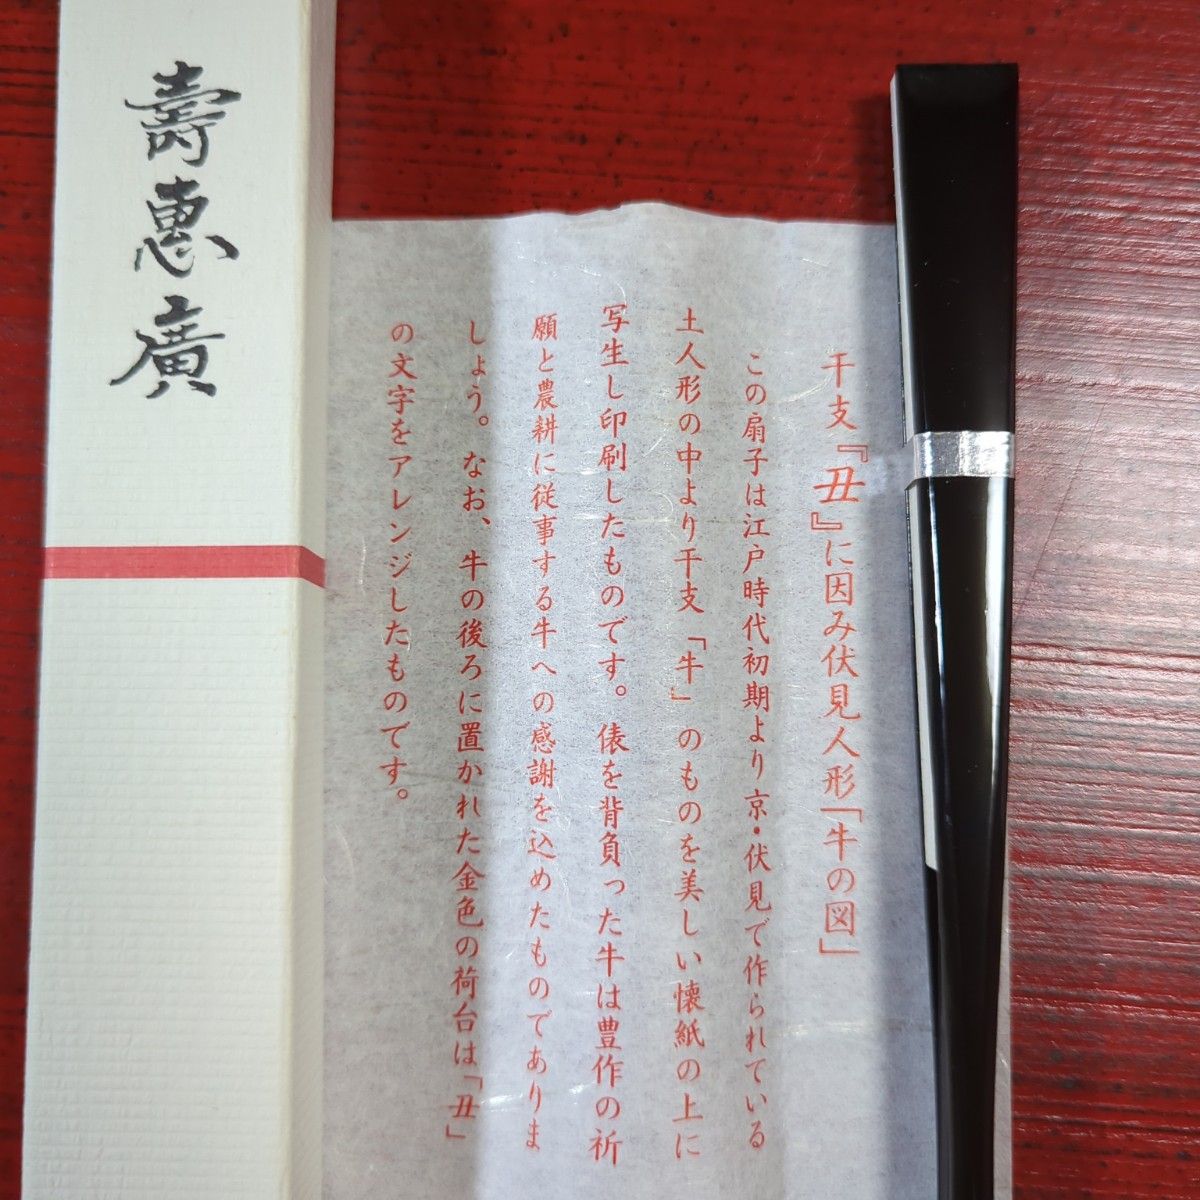 干支『丑』に因み伏見人形「牛の図」
この扇子は江戸時代初期より京・伏見で作られている
土人形の中より干支「牛」のものを美しい懐紙の上に
写生し印刷したものです。俵を背負った牛は豊作の祈
願と農耕に従事する牛への感謝を込めたものでありま
しょう。なお、牛の後ろに置かれた金色の荷台は「丑」
の文字をアレンジしたものです。
壽恵廣